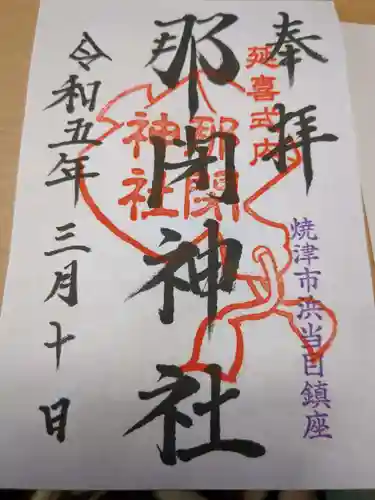 奉拝
延喜式内
焼津市浜当目鎮座
那閇神社
那閇
神社
令和五年三月十日